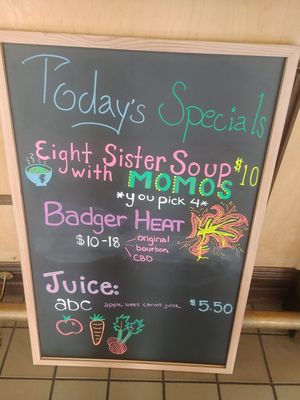 Today's Specials
Eight Sister Soup $10
with MOMOS
*you pick 4*
Badger HEAT
$10-18 original
bourbon
CBD
Juice:
abc apple beet carrot juice $5.50